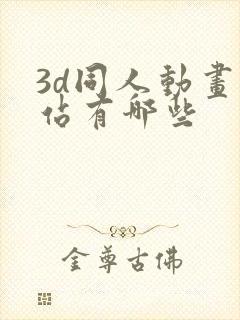 3d同人動畫
佔有哪些
金尊古佛